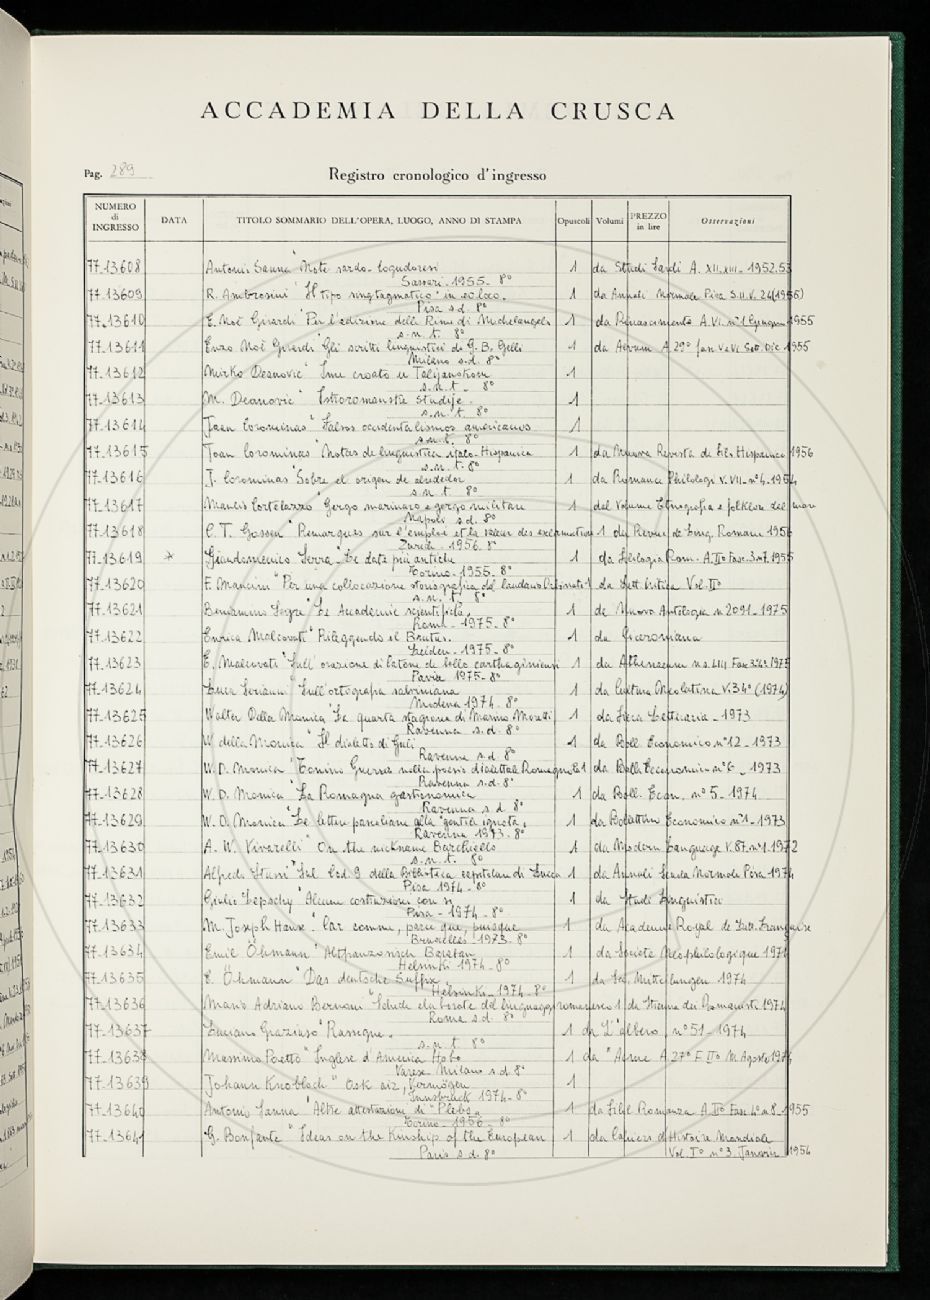 ACCADEMIA DELLA CRUSCA
Pag. 289
Registro cronologico d'ingresso
NUMERO di INGRESSO DATA TITOLO SOMMARIO DELL'OPERA, LUOGO, ANNO DI STAMPA Opuscoli Volumi PREZZO in lire Osservazioni
77.13608 Antonio Sanna "Note sardo-logudoresi 1 da Studi Sardi A. XII-XIII - 1952.53
Sassari - 1955 - 8°
77.13609 R. Ambrosini "Il tipo singtagmatico "in eo loco. 1 da Annali Normale Pisa S.II.V. 24(1955)
Pisa s.d. 8°
77.13610 E. Noè Girardi "Per l'edizione delle Rime di Michelangelo 1 da Rinascimento A.VI. n°1 Giugno 1955
s.n.t. 8°
77.13611 Enzo Noè Girardi "Gli scritti linguistici di G.B. Gelli 1 da Aevum A 29° fasc V e VI. Set. Dic. 1955
Milano s.d. 8°
77.13612 Mirko Deanovic "Ime croato u Talijanskom 1
s.n.t. 8°
77.13613 M. Deanovic "Istroromanske Studije. 1
s.n.t. 8°
77.13614 Joan Corominas "Falsos occidentalismos americanos 1
s.n.t. 8°
77.13615 Joan Corominas "Notas de linguistica italo-Hispanica 1 da Nueva Revista de Fil. Hispanica 1956
s.n.t. 8°
77.13616 J. Corominas "Sobre el origen de alrededor 1 da Romance Philologi V.VII-n°4-1954
s.n.t. 8°
77.13617 Manlio Cortelazzo "Gergo marinaro e gergo militare 1 dal Volume Etnografia e folklore del mare
Napoli s.d. 8°
77.13618 C.T. Gossen "Remarques sur l'emploi et la valeur des exclamation 1 da Revue de Ling. Romane 1956
Zurich - 1956. 8°
77.13619 * Giandomenico Serra "Le date più antiche 1 da Filologia Rom. A.II° Fasc. 3.n7.1955
Torino - 1955 - 8°
77.13620 F. Mancini "Per una collocazione storiografica del laudario Urbinate 1 da Lett. Critica Vol. II°
s.n.t. 8°
77.13621 Beniamino Segre "Le Accademie scientifiche. 1 da Nuova Antologia n 2091 - 1975
Roma - 1975 - 8°
77.13622 Enrica Malcovati "Rileggendo il Brutus. 1 da Ciceroniana
Leiden - 1975 - 8°
77.13623 E. Malcovati "Sull'orazione di Catone de bello carthaginiensi 1 da Athenaeum n.s. LIII. Fasc 3°4° 1975
Pavia 1975 - 8°
77.13624 Luca Serianni "Sull'ortografia salviniana 1 da Cultura Neolatina V.34° (1974)
Modena 1974. 8°
77.13625 Walter Della Monica "La quarta stagione di Marino Moretti 1 da Fiera Letteraria - 1973
Ravenna s.d. 8°
77.13626 W. della Monica "Il dialetto di Guli 1 da Boll. Economico n°12 - 1973
Ravenna s.d. 8°
77.13627 W.D. Monica "Tonino Guerra nella poesia dialettale Romagnola 1 da Boll. Economico n°6 - 1973
Ravenna s.d. 8°
77.13628 W.D. Monica "La Romagna gastronomica 1 da Boll. Econ. n° 5 - 1974
Ravenna s.d. 8°
77.13629 W.D. Monica "Le lettere pascoliane alla "gentile ignota. 1 da Bollettino Economico n°1 - 1973
Ravenna 1973. 8°
77.13630 A.W. Vivarelli "On the nickname Burchiello 1 da Modern Language V.87.n°1.1972
s.n.t. 8°
77.13631 Alfredo Stussi "Sul Cod. 9 della Biblioteca capitolare di Lucca 1 da Annali Scuola Normale Pisa 1974
Pisa 1974 - 8°
77.13632 Giulio Lepschy "Alcune costruzioni con si 1 da Studi Linguistici
Pisa - 1974 - 8°
77.13633 M. Joseph Hanse "Car comme, parce que, puisque 1 da Academie Royal de Lett. Française
Bruxelles - 1973 - 8°
77.13634 Emil Öhmann "Altfranzosisch Bastan 1 da Societe Neophilologique 1974
Helsinki 1974 - 8°
77.13635 E. Öhmann "Das deutsche Suffix. 1 da Mitteilungen 1974
Helsinki - 1974 - 8°
77.13636 Mario Adriano Bernoni "Schede elaborate del linguaggio romanesco 1 da Strenna dei Romanisti 1974
Roma s.d. 8°
77.13637 Luciano Graziuso "Rassegne. 1 da "L'albero. n°51 - 1974
s.n.t. 8°
77.13638 Massimo Poetto "Inglese d'America Hobo 1 da "Acme A 27° F.II° M. Agosto 1974
Varese Milano s.d. 8°
77.13639 Johann Knobloch "Osk aiz, Vermögen 1
Innsbruck 1974 - 8°
77.13640 Antonio Sanna "Altre attestazioni di "Plebs. 1 da Filol. Romanza A.II° Fasc. 4° n 8 - 1955
Torino - 1956 - 8°
77.13641 G. Bonfante "Ideas on the Kinship of the European 1 da Cahiers d'Histoire Mondiale
Paris s.d. 8° Vol. I° n°3. Janvier 1954